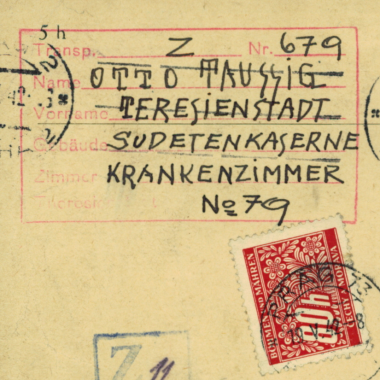 5 h
Transp. Z Nr. 679
Name OTTO TAUSSIG
Vorname TERESIENSTADT
Gebäude SUDETENKASERNE
Zimmer KRANKENZIMMER
No 79
BÖHMEN UND MÄHREN
ČECHY A MORAVA
60h
Z 11